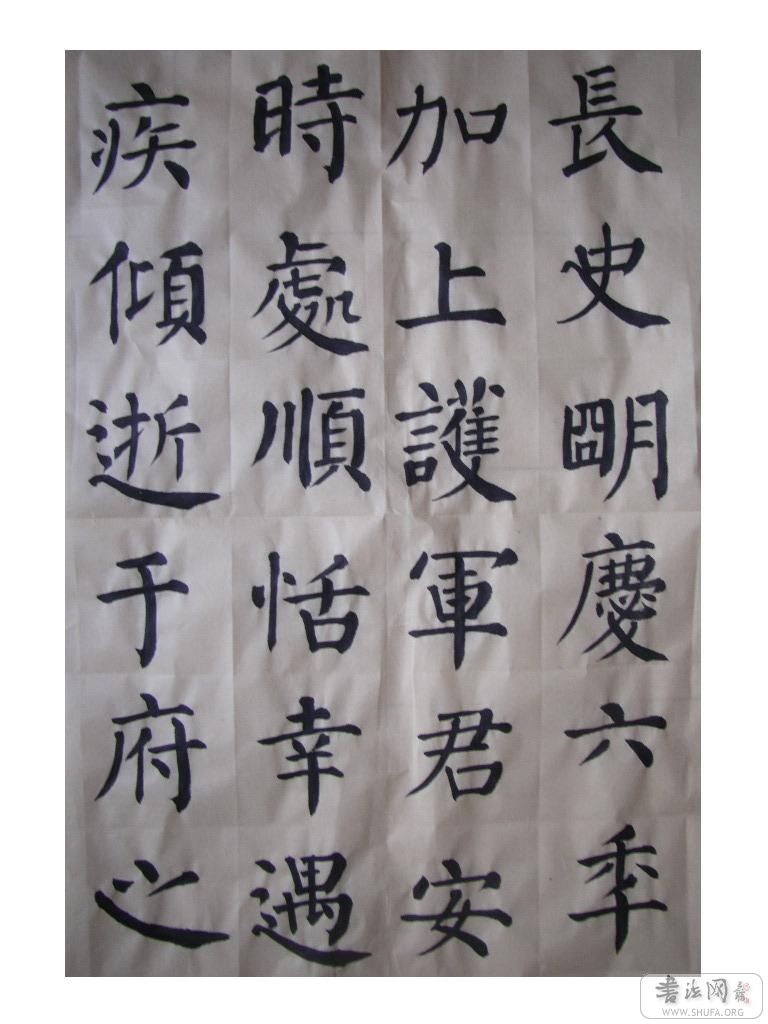 長史明慶六秊
加上護軍君安
時處順恬幸遇
疾傾逝于府之
書法网
WWW.SHUFA.ORG